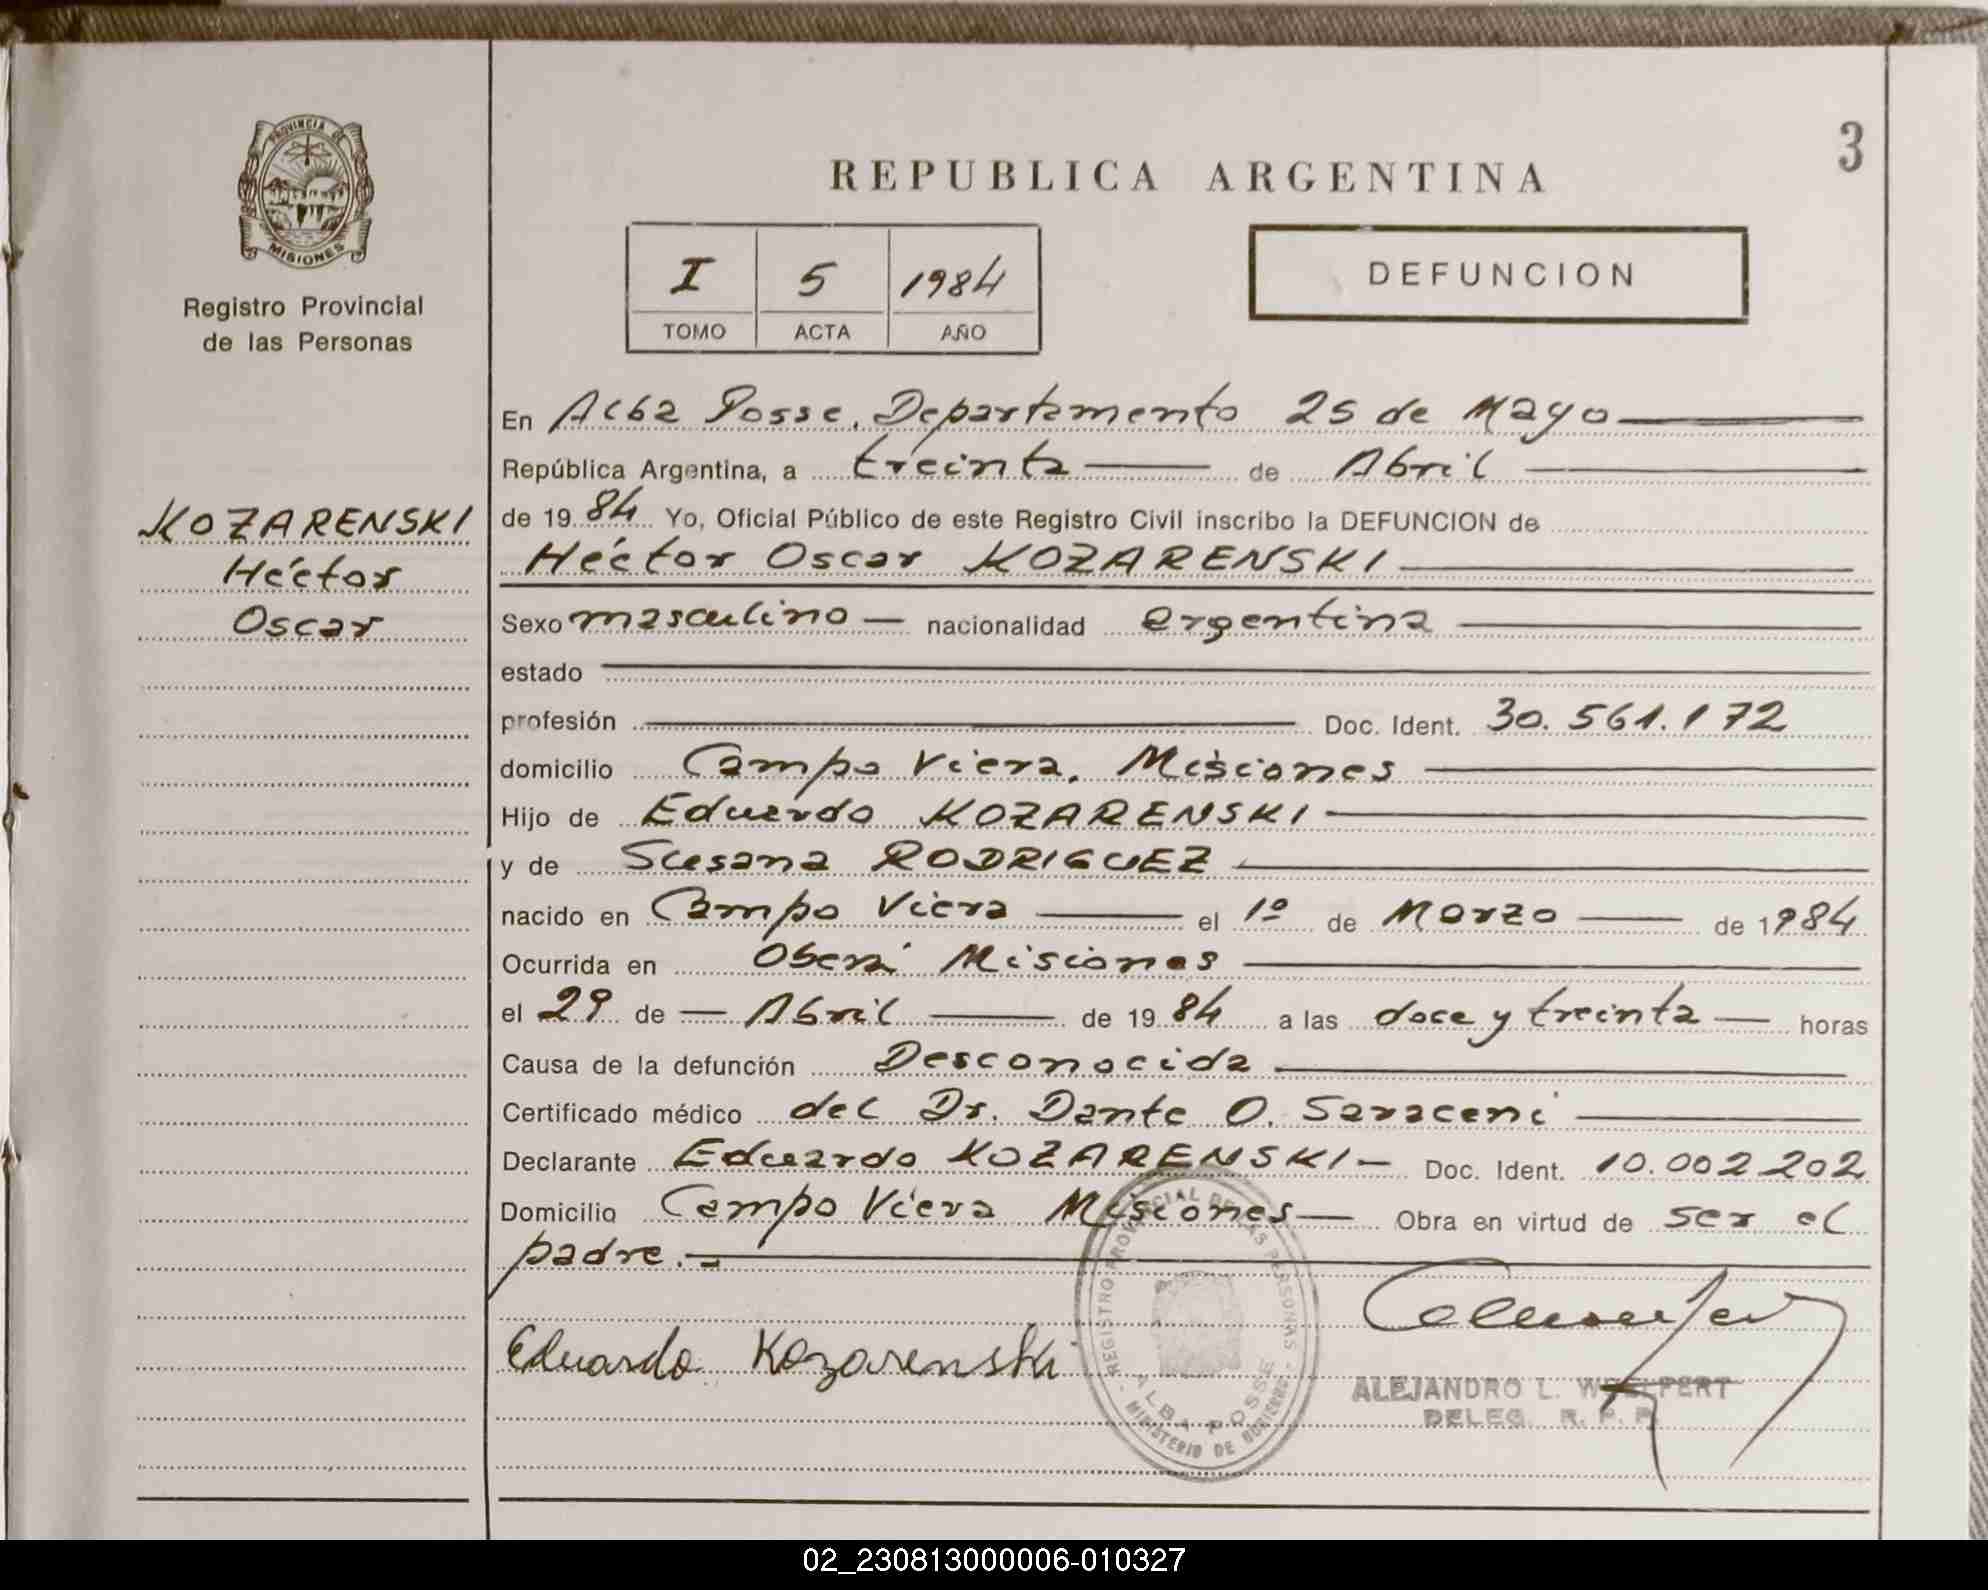 PROVINCIA DE
MISIONES
Registro Provincial
de las Personas
KOZARENSKI
Héctor
Oscar
3
REPUBLICA ARGENTINA
I 5 1984
TOMO ACTA AÑO
DEFUNCION
En Alba Posse, Departamento 25 de Mayo
República Argentina, a treinta de Abril
de 19 84 Yo, Oficial Público de este Registro Civil inscribo la DEFUNCION de
Héctor Oscar KOZARENSKI
Sexo masculino nacionalidad argentina
estado
profesión Doc. Ident. 30.561.172
domicilio Campo Viera, Misiones
Hijo de Eduardo KOZARENSKI
y de Susana RODRIGUEZ
nacido en Campo Viera el 1º de Marzo de 1984
Ocurrida en Oberá Misiones
el 29 de Abril de 19 84 a las doce y treinta horas
Causa de la defunción Desconocida
Certificado médico del Dr. Dante O. Saraceni
Declarante Eduardo KOZARENSKI Doc. Ident. 10.002202
Domicilio Campo Viera Misiones Obra en virtud de ser el
padre.-
Eduardo Kozarenski
REGISTRO PROVINCIAL DE LAS PERSONAS
ALBA POSSE
MINISTERIO DE GOBIERNO
ALEJANDRO L. WOLFERT
DELEG. R. P. P.
02_230813000006-010327